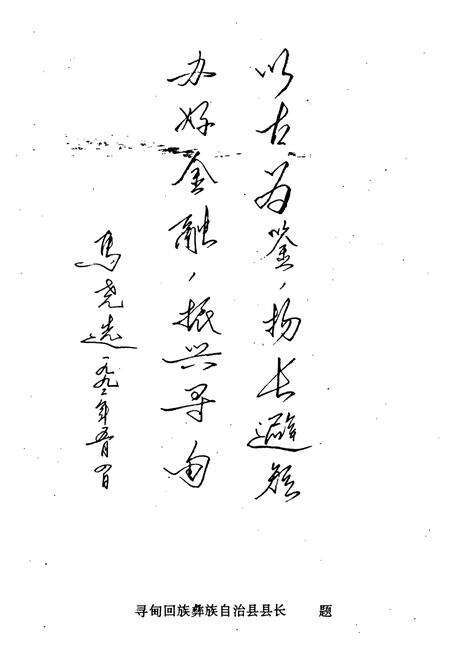 以古为鉴，扬长避短
办好金融，振兴寻甸
馬尧选
一九九二年五月四日
寻甸回族彝族自治县县长 题